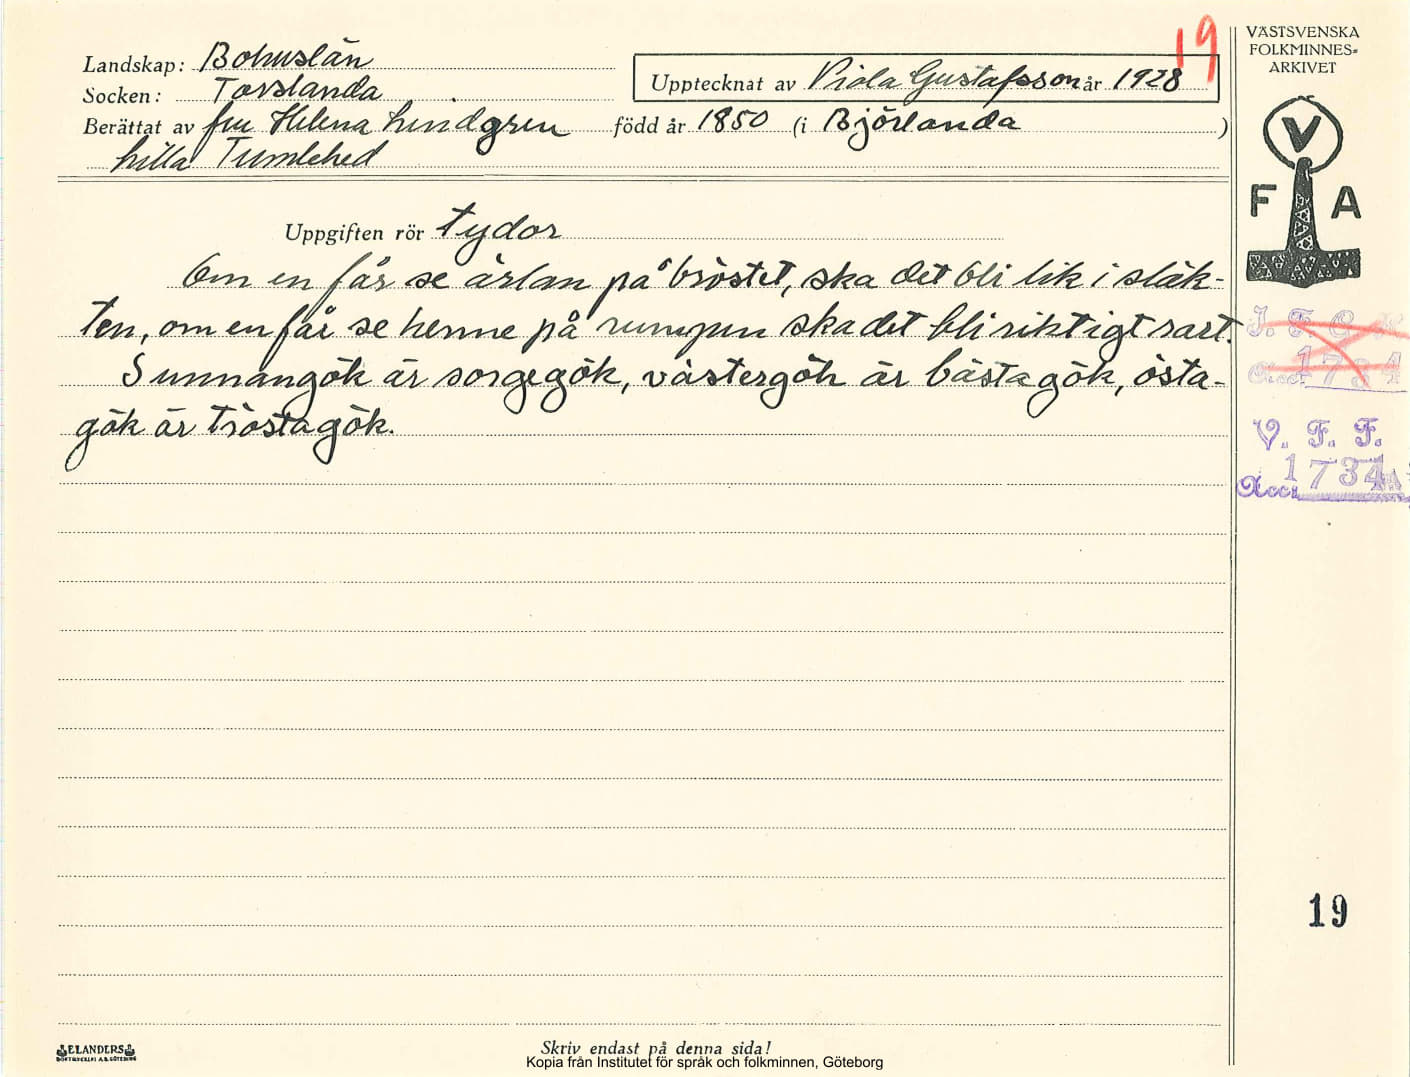 19
VÄSTSVENSKA
FOLKMINNES-
ARKIVET
Landskap: Bohuslän
Socken: Torslanda
Upptecknat av Viola Gustafsson år 1928
Berättat av fru Helena Lindgren född år 1850 (i Björlanda )
Lilla Tumlehed
V
F A
Uppgiften rör tydor
Om en får se ärlan på bröstet, ska det bli lik i släk-
ten, om en får se henne på rumpen ska det bli riktigt rart.
Sunnangök är sorgegök, västergök är bästa gök, östa-
gök är tröstagök.
Acc. 1734
V. F. F.
Acc. 1734
19
ELANDERS
BOKTRYCKERI A.B. GÖTEBORG
Skriv endast på denna sida!
Kopia från Institutet för språk och folkminnen, Göteborg